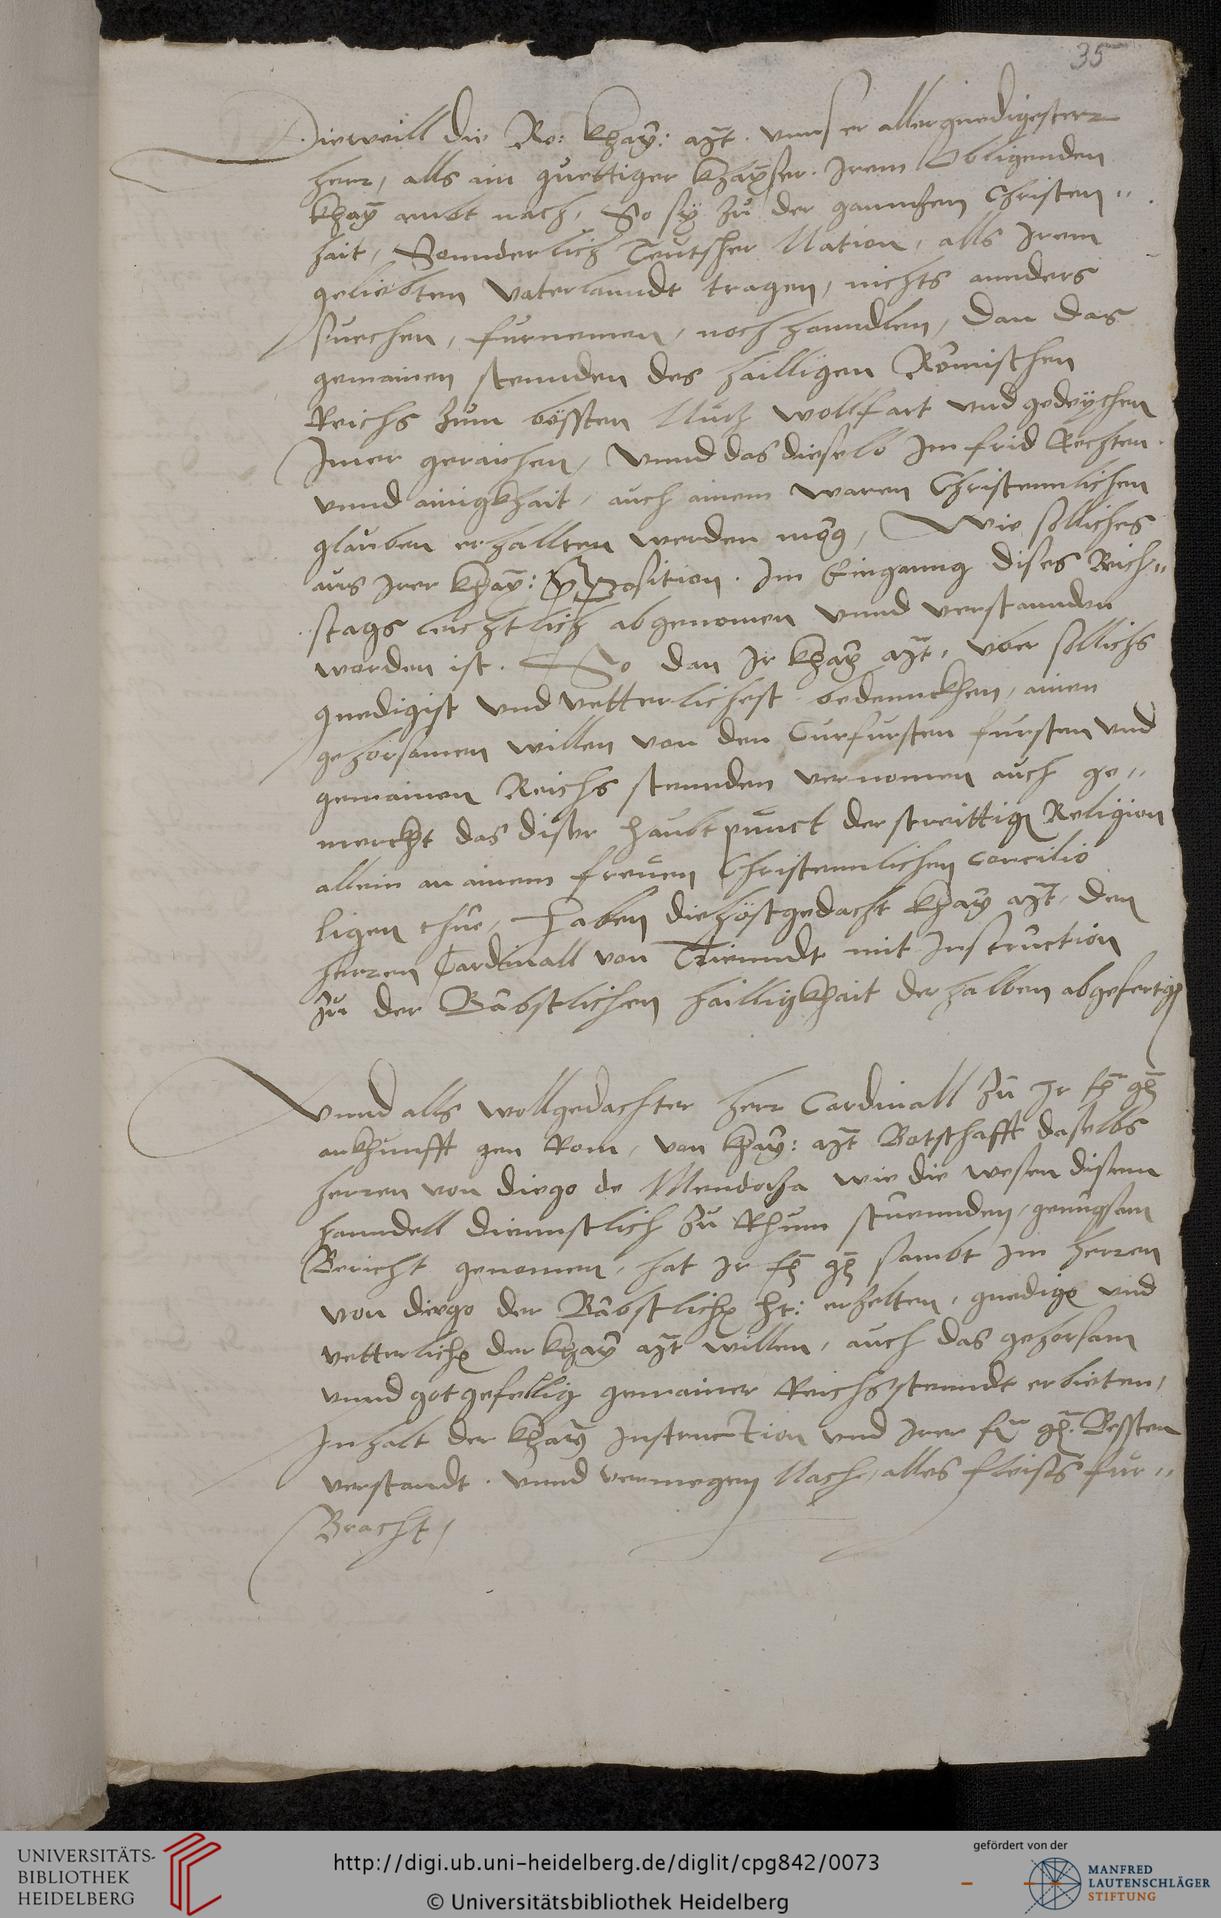 35
Dieweill die Ro: khay: Mt. unnser allergnedigester
herr, alls ain guettiger khayser. Irem Obligenden
khay ambt nach, So sy zu der ganntzen Christen"
hait, Sonnderlich Teutsher Nation, alls Irem
geliebten Vaterlanndt tragen, nichts annders
suechen, furnemen, noch hanndlen, dan das
gemainen stennden des hailligen Römischen
Reichs zum bessten Nutz wollfart und gedeychen
Imer geraichen, Unnd das dieselb Im frid Rechten
unnd ainigkhait, auch ainem waren Christennlichen
glauben erhallten werden mög, Wie solliches
aus Irer khay: Proposition. Im Einganng dises Reich"
stags leichtlich abgenomen unnd verstannden
worden ist. So dan Ir khay Mt, uber sollichs
gnedigist und vetterlichest bedennckhen, ainen
gehorsamen willen von den Curfursten fursten und
gemainen Reichs stennden vernomen auch ge"
merckht das diser haubtpunct der streittig Religion
allein an ainem freuen Christennlichen Concilio
ligen thue, Haben die höstgedacht khay Mt, den
herren Cardinall von Trienndt mit Instruction
zu der Bäbstlichen hailligkhait derhalben abgefertig
Unnd alls wollgedachter herr Cardinall zu Ir f gh
ankhunfft gen Rom, von khay: Mt Botschafft daselbs
herren von diego de Mendotza wie die wesen disem
hanndell diennstlich zu Rhum stuennden, genugsam
Bericht genomen, hat Ir f gh sambt Im herren
von diego der Bäbstlich ht: erhelten, gnedig und
vetterlich der khay Mt willen, auch das gehorsam
unnd gotgefellig gemainer Reichsstenndt erbieten,
Inhalt der khay Instruction und Irer f gh. Bessten
verstandt. unnd vermegen Nach, alles fleiss fur"
Bracht,
UNIVERSITÄTS-
BIBLIOTHEK
HEIDELBERG
http://digi.ub.uni-heidelberg.de/diglit/cpg842/0073
© Universitätsbibliothek Heidelberg
gefördert von der
MANFRED
LAUTENSCHLÄGER
STIFTUNG